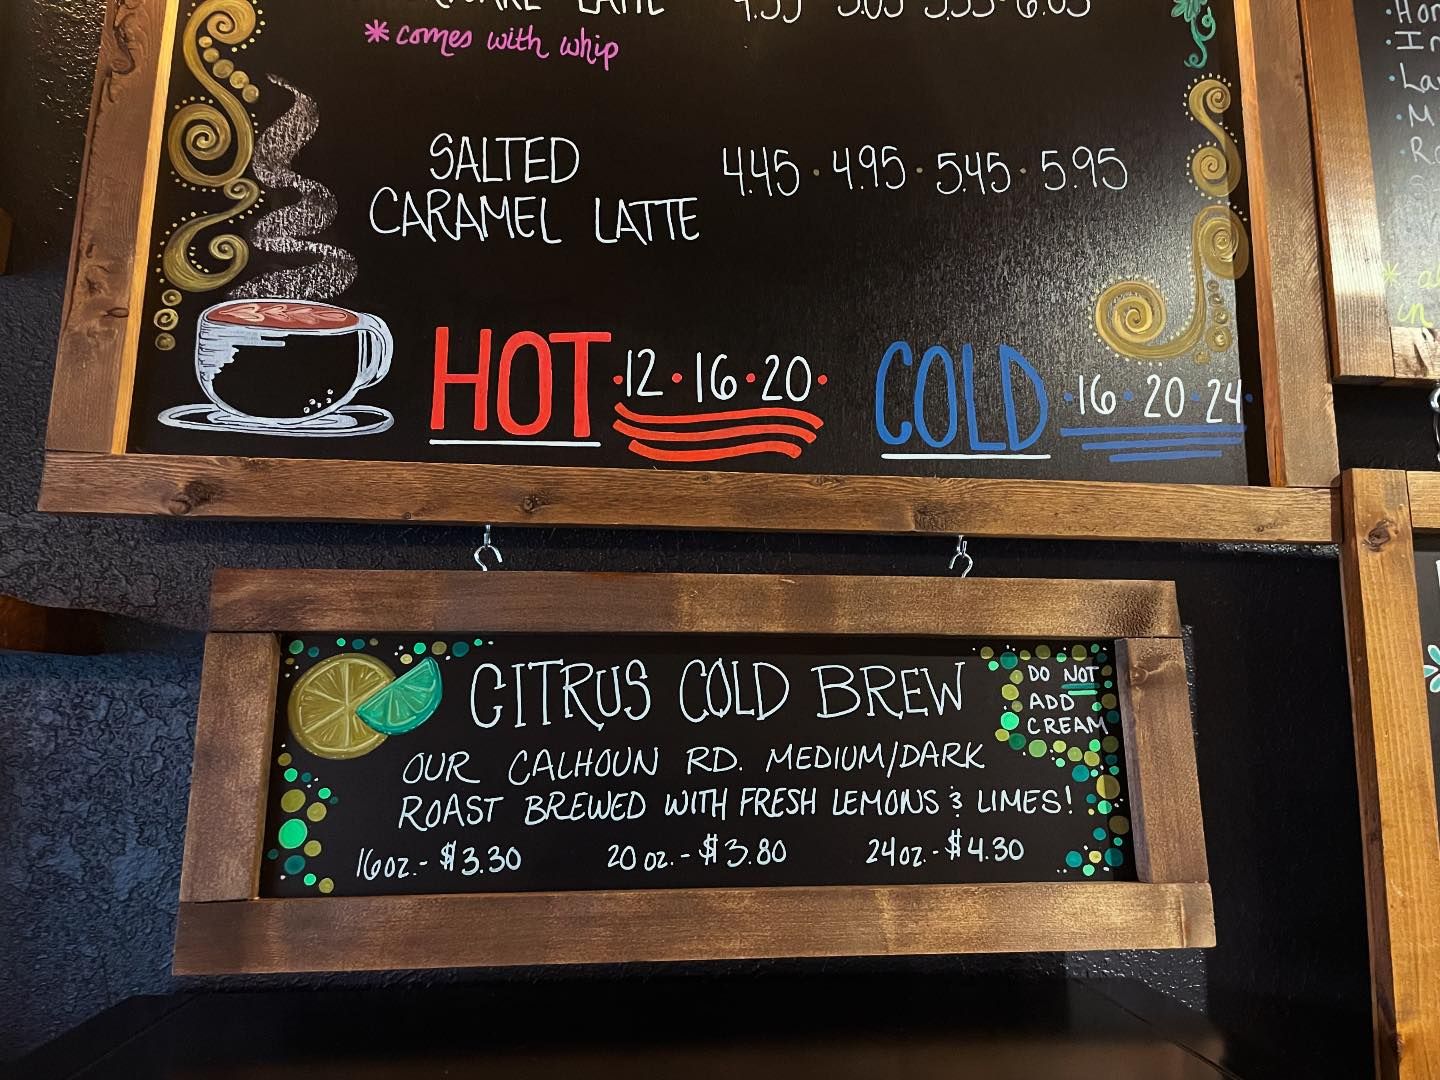 LATTE
*comes with whip
SALTED
CARAMEL LATTE
4.45 · 4.95 · 5.45 · 5.95
HOT ·12 · 16 · 20·
COLD ·16 · 20 · 24·
CITRUS COLD BREW
DO NOT
ADD
CREAM
OUR CALHOUN RD. MEDIUM/DARK
ROAST BREWED WITH FRESH LEMONS & LIMES!
16oz. - $3.30 20 oz. - $3.80 24oz. - $4.30
in